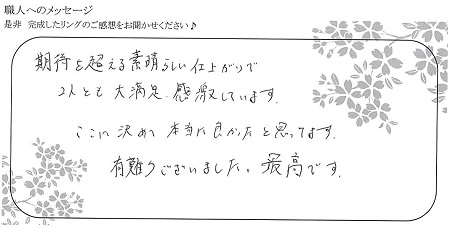 職人へのメッセージ
是非 完成したリングのご感想をお聞かせください♪
期待を超える素晴らしい仕上がりで
2人とも 大満足、感激しています。
ここに決めて 本当に良かったと思ってます。
有難うございました。最高です。